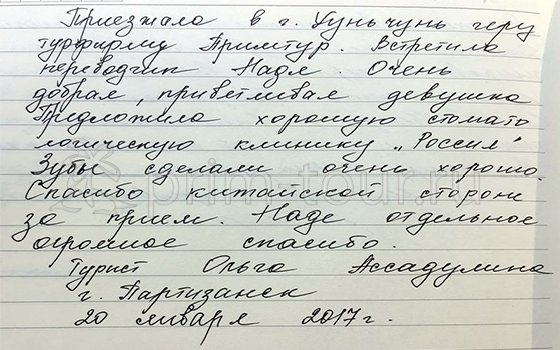 Приезжала в г. Хуньчунь через
турфирму Примтур. Встретила
переводчик Надя. Очень
добрая, приветливая девушка
Предложила хорошую стомато
логическую клинику „Россия"
Зубы сделали очень хорошо.
Спасибо китайской стороне
за прием. Наде отдельное
огромное спасибо.
Турист Ольга Ассадулина
г. Партизанск
20 января 2017г.
prim-tour.ru